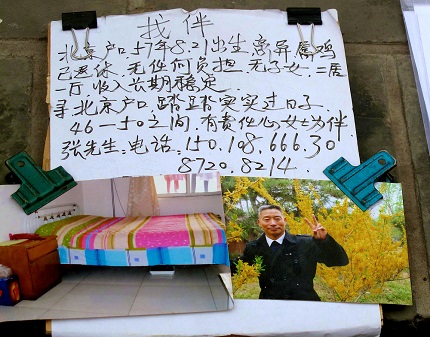 找伴
北京户口57年8.21出生离异属鸡
已退休.无任何负担.无子女.二居
一厅.收入长期稳定.
寻北京户口.踏踏实实过日子.
46—50之间.有责任心女士为伴
张先生.电话.150.108.666.30
8720.8214.